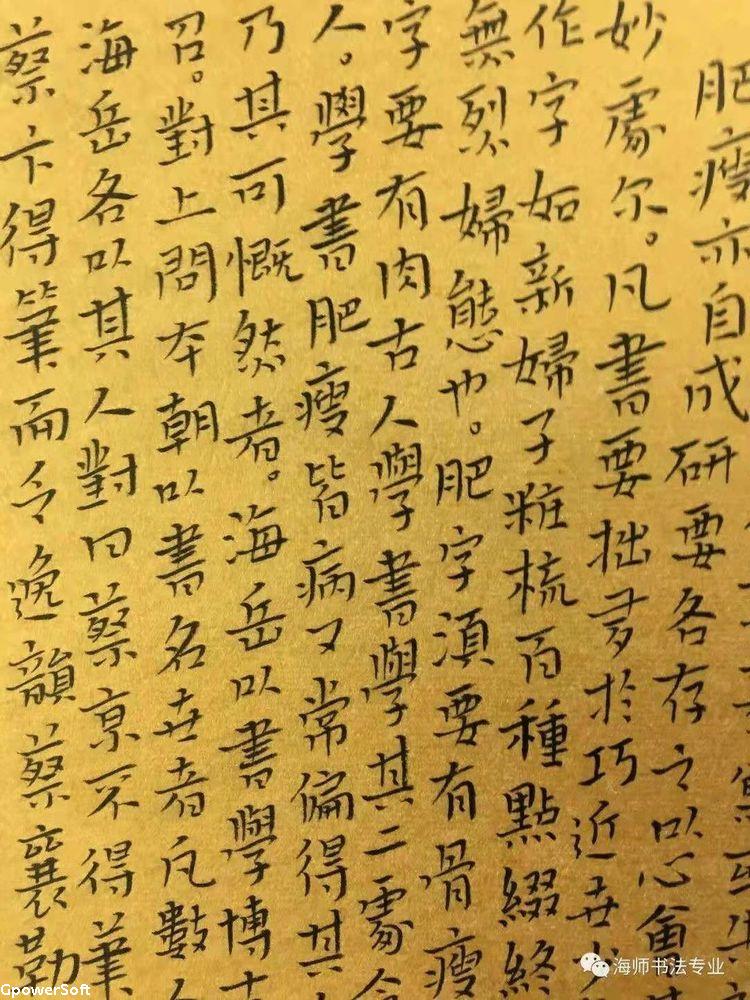 肥瘦亦自成研要各存之以心
妙處尔。凡書要拙多於巧近世少
作字如新婦子粧梳百種點綴終
無烈婦態也。肥字須要有骨瘦
字要有肉古人學書學其二處今
人。學書肥瘦皆病又常偏得其
乃其可慨然者。海岳以書學博士
召。對上問本朝以書名世者凡數人
海岳各以其人對曰蔡京不得筆
蔡卞得筆而今逸韻蔡襄勒
海师书法专业
GpowerSoft